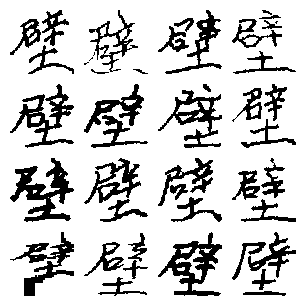 壁壁壁壁
壁壁壁壁
壁壁壁壁
壁壁壁壁